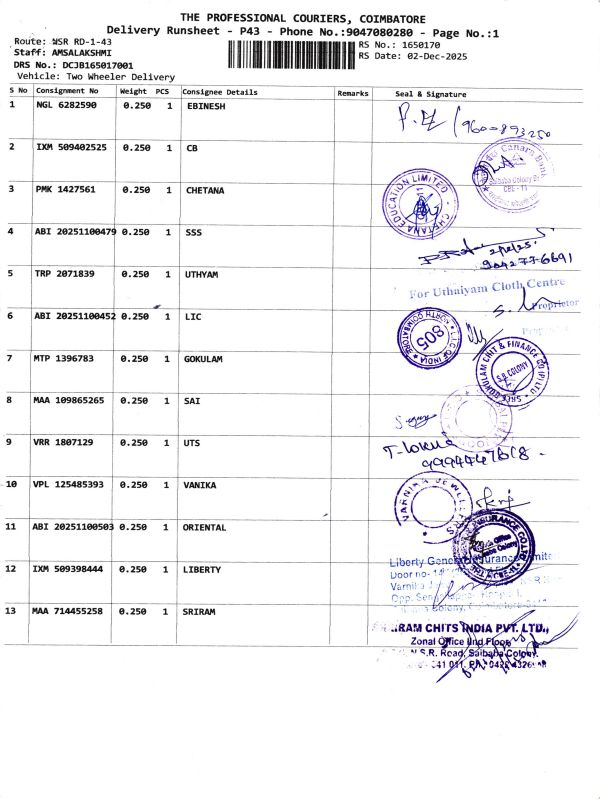 THE PROFESSIONAL COURIERS, COIMBATORE
Delivery Runsheet - P43 - Phone No.:9047080280 - Page No.:1
Route: NSR RD-1-43
Staff: AMSALAKSHMI
DRS No.: DCJB165017001
Vehicle: Two Wheeler Delivery
RS No.: 1650170
RS Date: 02-Dec-2025
S No Consignment No Weight PCS Consignee Details Remarks Seal & Signature
1 NGL 6282590 0.250 1 EBINESH
2 IXM 509402525 0.250 1 CB
Canara Bank
Saibaba Colony
CBE - 11
3 PMK 1427561 0.250 1 CHETANA
CHETANA EDUCATION LIMITED
4 ABI 20251100479 0.250 1 SSS
9042776691
5 TRP 2071839 0.250 1 UTHYAM
For Uthaiyam Cloth Centre
Proprietor
6 ABI 20251100452 0.250 1 LIC
L.I.C OF INDIA
NORTH COIMBATORE
805
7 MTP 1396783 0.250 1 GOKULAM
SREE GOKULAM CHIT & FINANCE CO (P) LTD
S.B. COLONY
8 MAA 109865265 0.250 1 SAI
9 VRR 1807129 0.250 1 UTS
10 VPL 125485393 0.250 1 VANIKA
VARNIKA JEWELLERS
11 ABI 20251100503 0.250 1 ORIENTAL
INSURANCE CO. LTD
Office
Colony
12 IXM 509398444 0.250 1 LIBERTY
Liberty General Insurance Limite
Door no-
Varnika
Opp.
Colony,
13 MAA 714455258 0.250 1 SRIRAM
RAM CHITS INDIA PVT. LTD.,
Zonal Office IInd Floor
N.S.R. Road, Saibaba Colony.